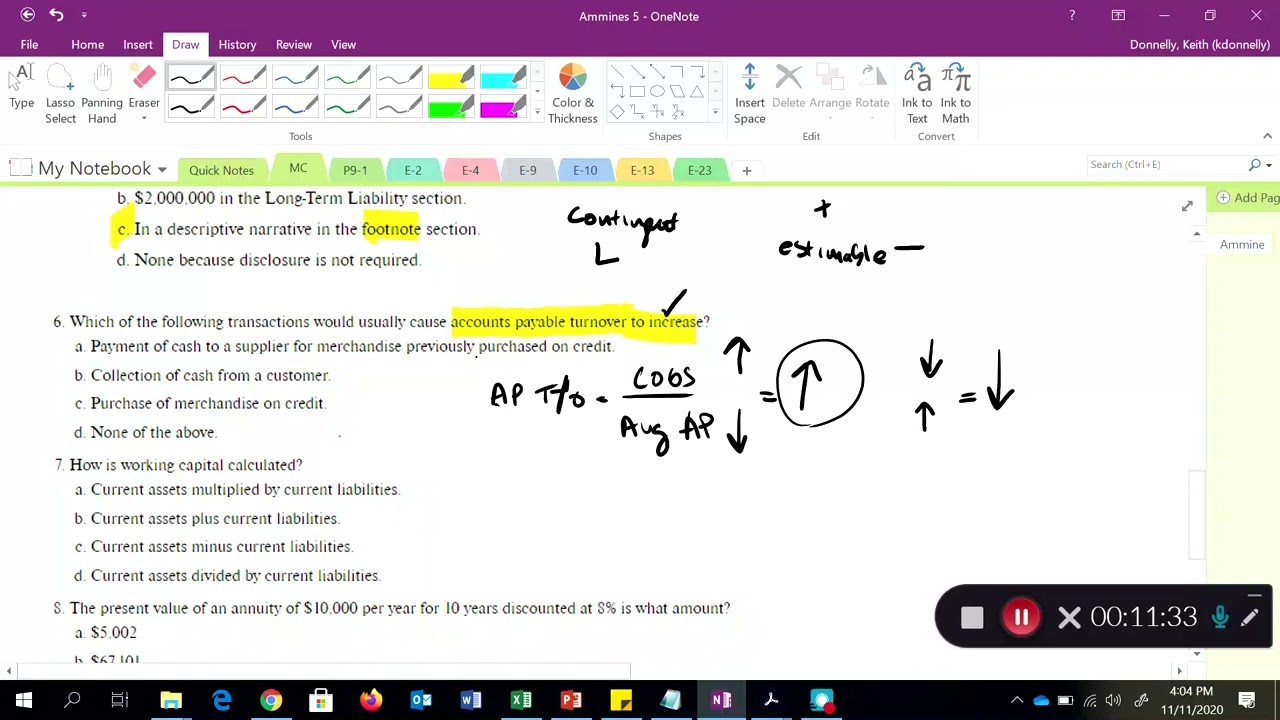 Ammines 5 - OneNote
?
File Home Insert Draw History Review View
Donnelly, Keith (kdonnelly)
Type
Lasso Select
Panning Hand
Eraser
Color & Thickness
Insert Space
Delete
Arrange
Rotate
Ink to Text
Ink to Math
Tools
Shapes
Edit
Convert
My Notebook
Quick Notes
MC
P9-1
E-2
E-4
E-9
E-10
E-13
E-23
+
Search (Ctrl+E)
Add Pag
Ammine
b. $2,000,000 in the Long-Term Liability section.
c. In a descriptive narrative in the footnote section.
d. None because disclosure is not required.
Contingent
L
+
estimable —
6. Which of the following transactions would usually cause accounts payable turnover to increase?
a. Payment of cash to a supplier for merchandise previously purchased on credit.
b. Collection of cash from a customer.
c. Purchase of merchandise on credit.
d. None of the above.
AP T/o = COGS ↑ / Avg AP ↓ = ↑
↓ ↑ = ↓
7. How is working capital calculated?
a. Current assets multiplied by current liabilities.
b. Current assets plus current liabilities.
c. Current assets minus current liabilities.
d. Current assets divided by current liabilities.
8. The present value of an annuity of $10,000 per year for 10 years discounted at 8% is what amount?
a. $5,002
b. $67,101
00:11:33
4:04 PM
11/11/2020